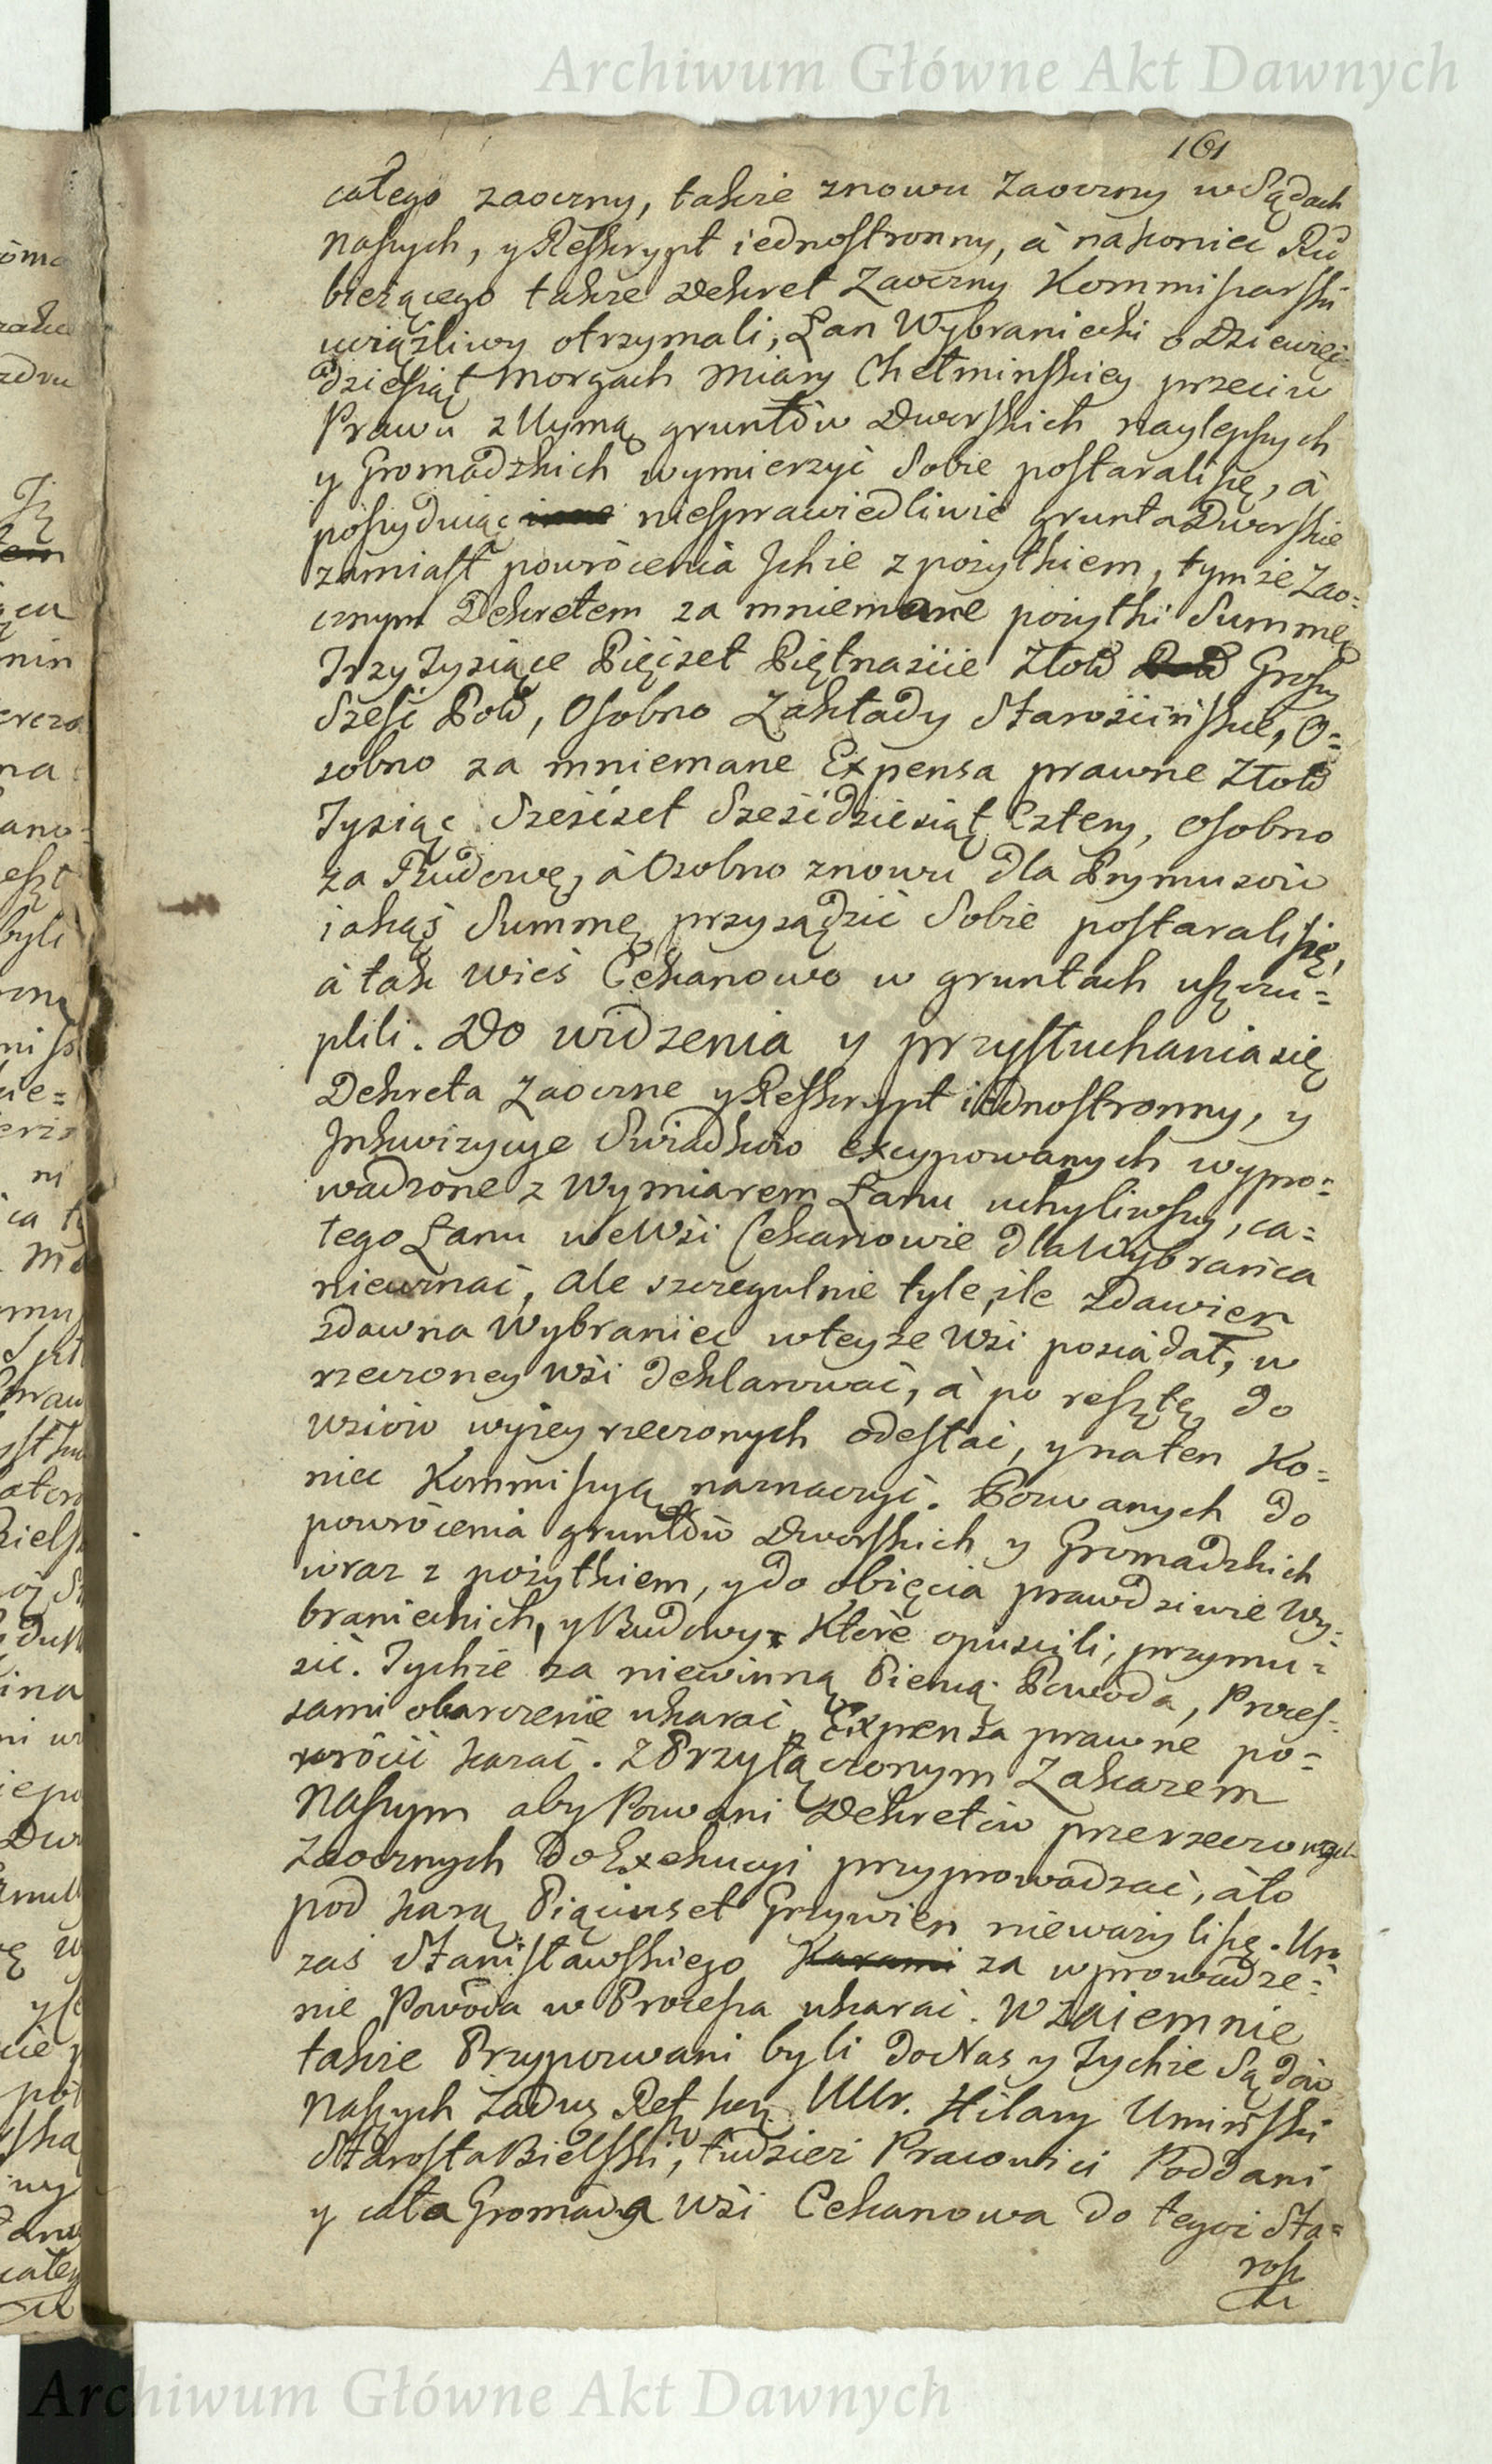 Archiwum Główne Akt Dawnych
161
całego zaoczny, także znowu Zaoczny w Sądach
Naszych, y Reskrypt iednostronny, à nakoniec Ru
bieżącego także Dekret Zaoczny Kommissarski
uciążliwy otrzymali, Łan Wybraniecki o Dziewięć
dziesiąt Morgach Miary Chełminskiey przeciw
Prawu z Uymą gruntów Dworskich naylepszych
y Gromadzkich wymierzyć Sobie postarali się, à
possyduiąc niesprawiedliwie grunta Dworskie
zamiast powrócenia Jchże z pożytkiem, tymże Zao=
cznym Dekretem za mniemane pożytki Summę
Trzy Tysiące Pięćset Piętnaście Złotd Groszy
Sześć Pold, Osobno Zakłady Starościńskie, O=
sobno za mniemane Expensa prawne Złotd
Tysiąc Sześćset Sześćdziesiąt Cztery, osobno
za Budowę, à Osobno znowu dla Prymusów
iakąś Summę przysądzić Sobie postarali się,
à tak Wieś Cekanowo w gruntach uszczu=
plili. Do widzenia y przysłuchania się
Dekreta Zaoczne y Reskrypt iednostronny, y
Jnkwizycye Swiadków excypowanych wypro=
wadzone z Wymiarem Łanu uchyliwszy, ca=
łego Łanu we Wsi Cekanowie dla Wybrańca
nieuznać, ale szczegulnie tyle, ile zdawien
zdawna Wybraniec wteyże Wsi posiadał, w
rzeczoney Wsi deklarować, à po resztę do
Wsiów wyżey rzeczonych odesłać, y na ten Ko=
niec Kommissyą naznaczyć. Pozwanych do
powrócenia gruntów Dworskich y Gromadzkich
wraz z pożytkiem, y do obięcia prawdziwie Wy=
branieckich, y Budowy, Które opuścili, przymu=
sić. Tychże za niewinną Pienią Powoda, Proces=
sami obarczenie ukarać, Expensa prawne po=
wrócić kazać. Z Przyłączonym Zakazem
Naszym aby Pozwani Dekretów przerzeczonych
Zaocznych do Exekucyi przyprowadzać, à to
pod karą Piąciuset Grzywien nieważyli się. Ur.
zaś Stanisławskiego za wprowadze=
nie Powoda w Processa ukarać. Wzaiemnie
także Przypozwani byli do Nas y Tychże Sądów
Naszych Zadw. Ur. Hilary Umiński
Starosta Bielski, tudzież Pracowici Poddani
y cała Gromada Wsi Cekanowa do tegoż Sta=
rost
Archiwum Główne Akt Dawnych